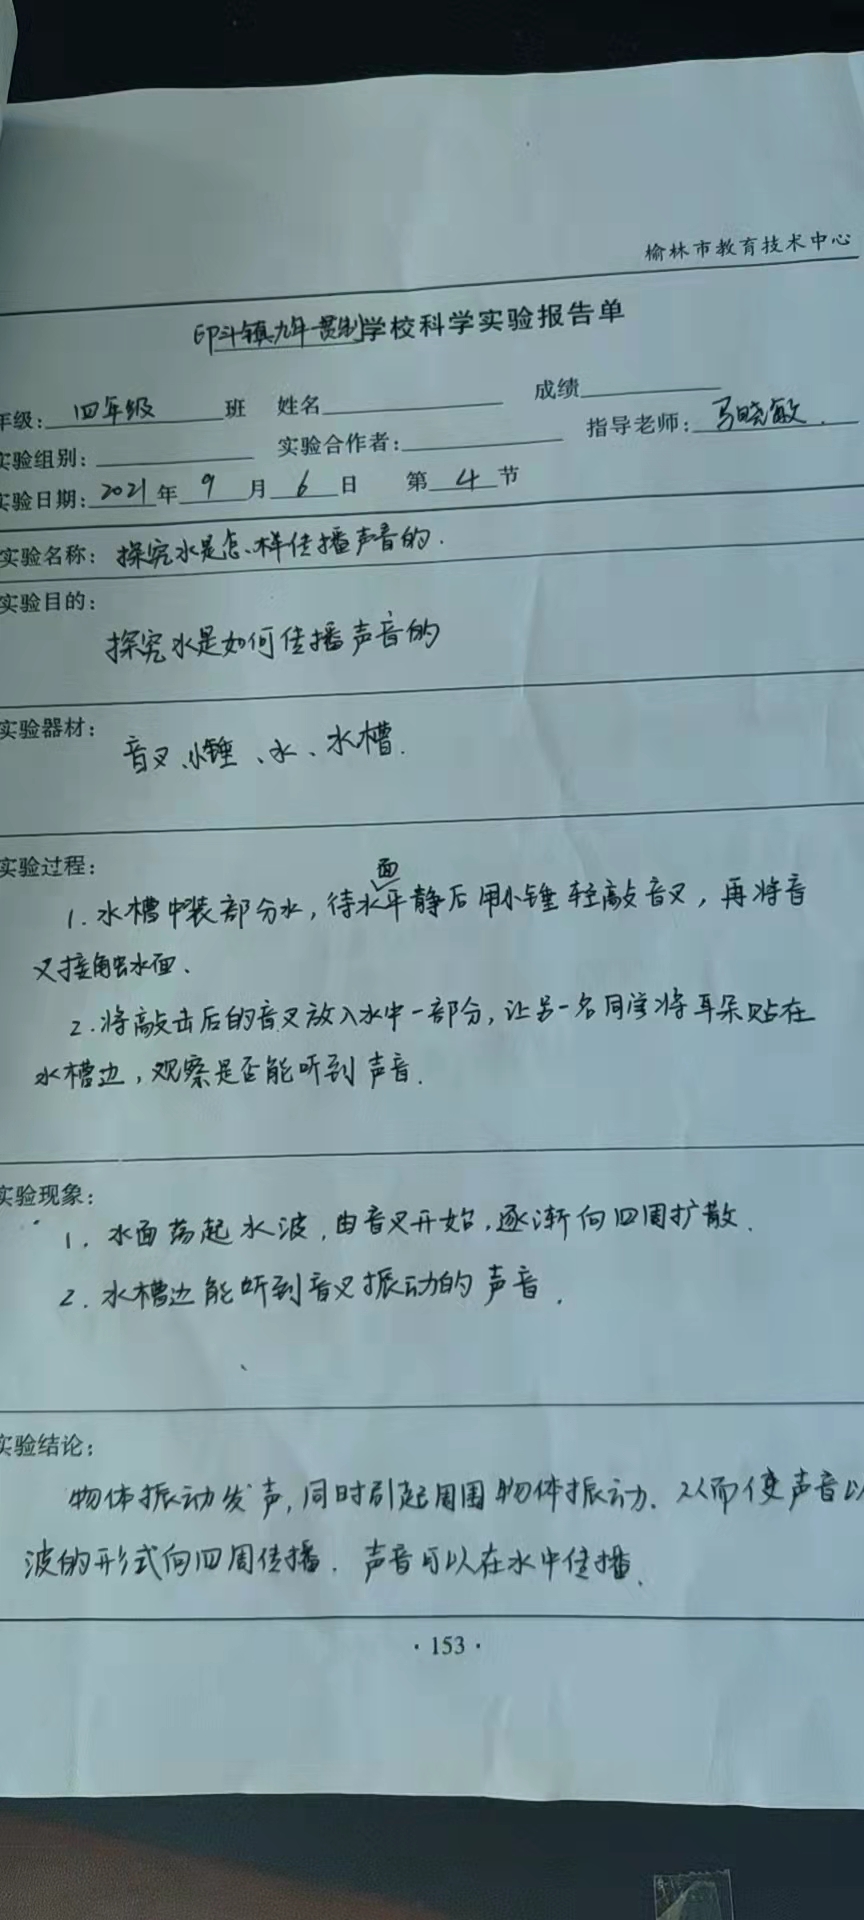 榆林市教育技术中心
印斗镇九年一贯制学校科学实验报告单
年级：四年级班 姓名 成绩
实验组别： 实验合作者： 指导老师：马晓敏.
实验日期：2021年9月6日 第4节
实验名称：探究水是怎样传播声音的.
实验目的：
探究水是如何传播声音的
实验器材：
音叉、小锤、水、水槽.
实验过程：
1.水槽中装部分水，待水面平静后用小锤轻敲音叉，再将音
叉接触水面.
2.将敲击后的音叉放入水中一部分，让另一名同学将耳朵贴在
水槽边，观察是否能听到声音.
实验现象：
1.水面荡起水波，由音叉开始，逐渐向四周扩散.
2.水槽边能听到音叉振动的声音.
实验结论：
物体振动发声，同时引起周围物体振动.从而使声音以
波的形式向四周传播.声音可以在水中传播.
·153·